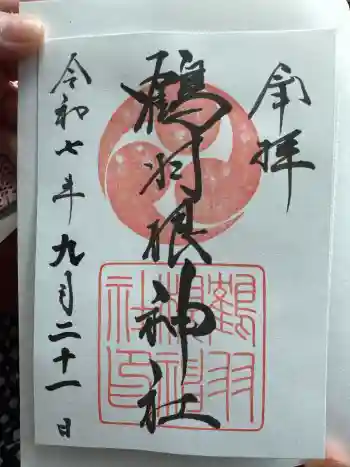 奉拝
鶴羽根神社
令和七年九月二十一日
鶴羽
根神
社印